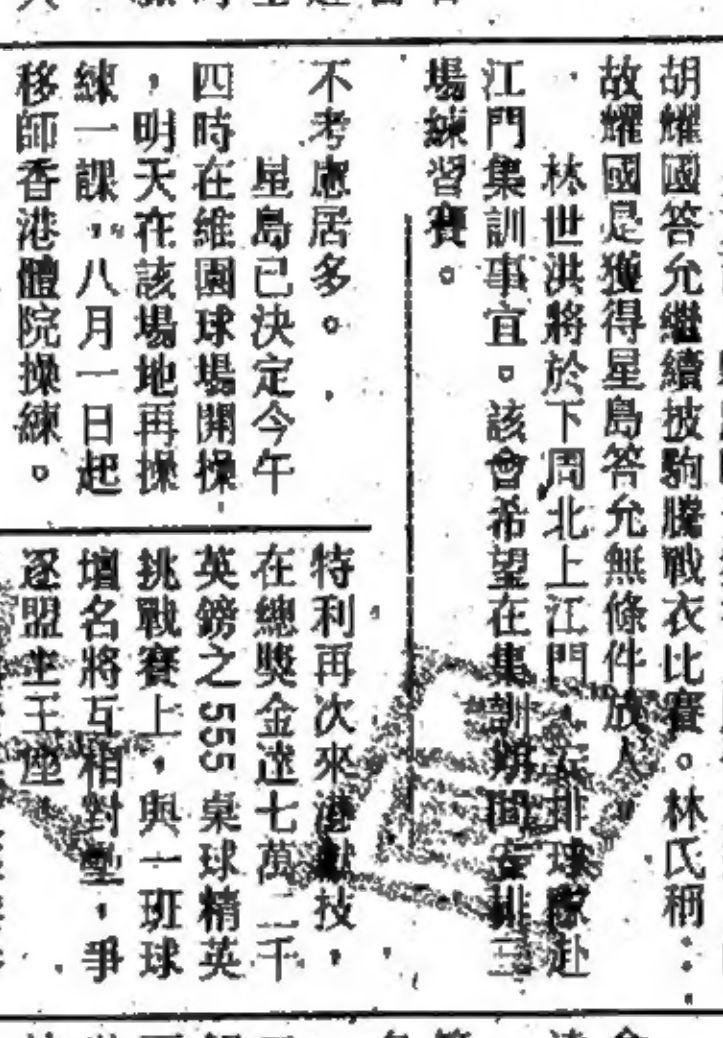 胡耀國答允繼續披駒騰戰衣比賽。林氏稱：
故耀國是獲得星島答允無條件放人，
林世洪將於下周北上江門，排球隊赴
江門集訓事宜。該會希望在集訓期間安排三
場練習賽。
不考慮居多。
星島已決定今午
四時在維園球場開操
，明天在該場地再操
練一課，八月一日起
移師香港體院操練。
特利再次來港獻技，
在總獎金達七萬二千
英鎊之555桌球精英
挑戰賽上，與一班球
壇名將互相對壘，爭
逐盟主王座，